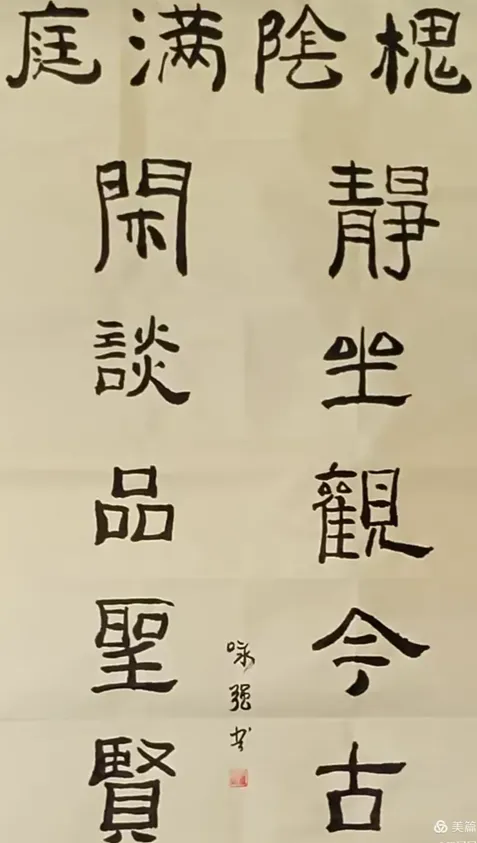 槐陰满庭
靜坐觀今古
閑談品聖賢
咏强书
美篇